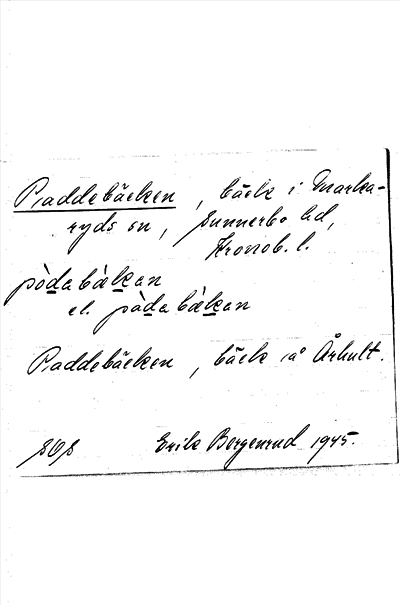 Paddebäcken, bäck i Marka-
ryds sn, Sunnerbo hd,
Kronob. l.
pòdabækan
el. pàdabækan
Paddebäcken, bäck på Århult.
SOS Erik Borgenrud 1945.